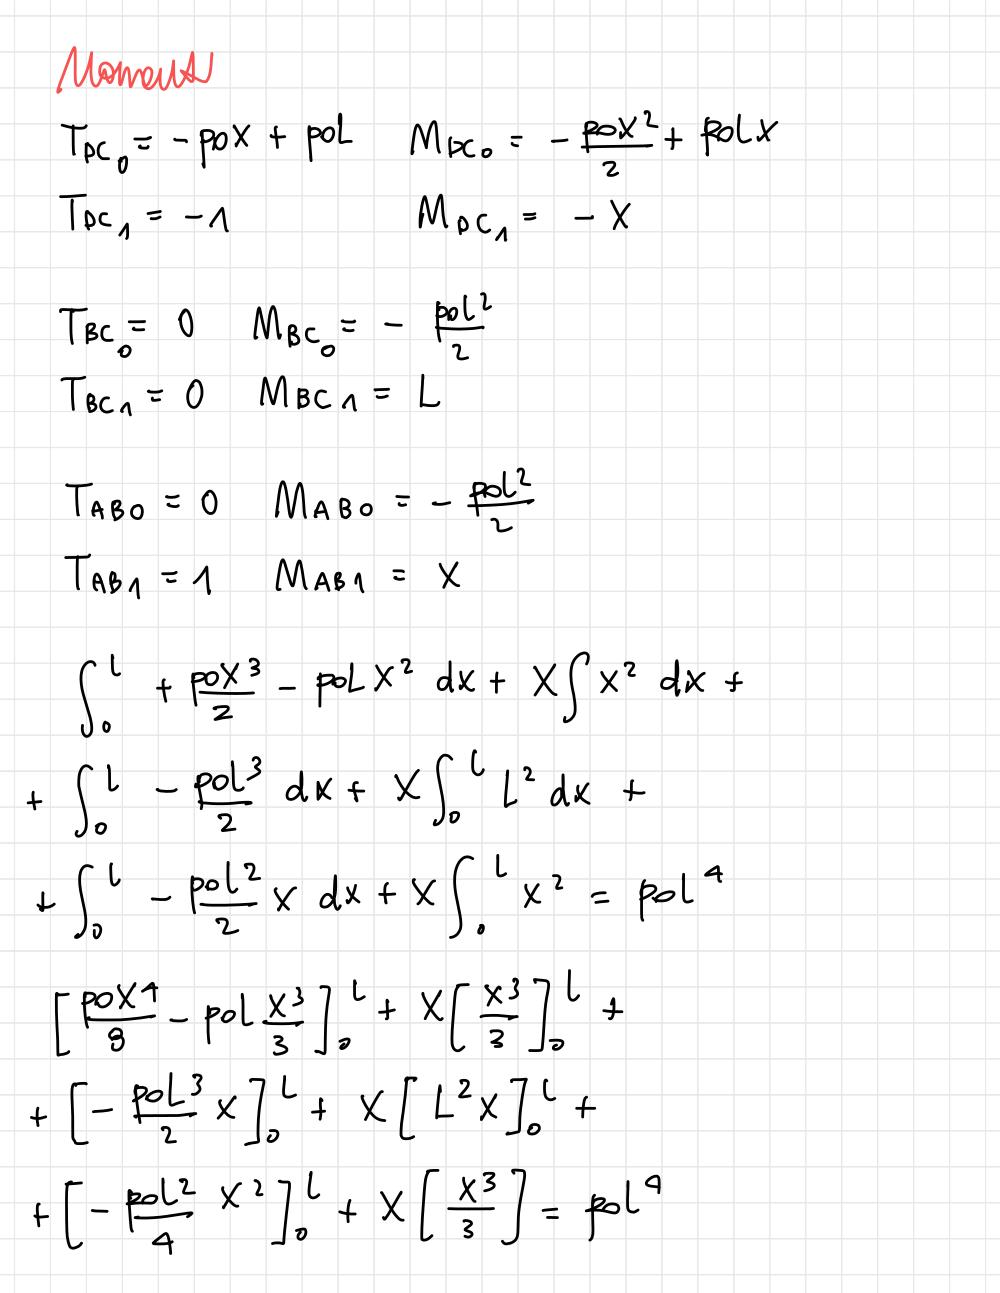 Momenti
T_DC₀ = - p₀x + p₀L M_DC₀ = - p₀x²/2 + p₀Lx
T_DC₁ = -1 M_DC₁ = - x
T_BC₀ = 0 M_BC₀ = - p₀L²/2
T_BC₁ = 0 M_BC₁ = L
T_AB₀ = 0 M_AB₀ = - p₀L²/2
T_AB₁ = 1 M_AB₁ = x
∫₀ᴸ + p₀x³/2 - p₀Lx² dx + X∫x² dx +
+ ∫₀ᴸ - p₀L³/2 dx + X∫₀ᴸ L² dx +
+ ∫₀ᴸ - p₀L²/2 x dx + X∫₀ᴸ x² = p₀L⁴
[p₀x⁴/8 - p₀L x³/3]₀ᴸ + X[x³/3]₀ᴸ +
+ [- p₀L³/2 x]₀ᴸ + X[L²x]₀ᴸ +
+ [- p₀L²/4 x²]₀ᴸ + X[x³/3] = p₀L⁴